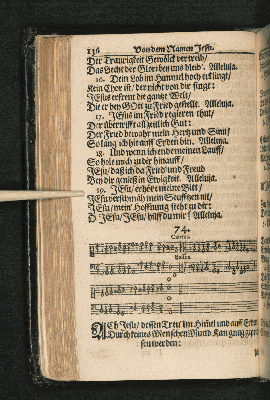 136 Von dem Namen Jesu.
Der Traurigkeit Gewölck vertreib/
Das Liecht der Glori bey uns bleib'. Alleluja.
16. Dein Lob im Himmel hoch erklingt/
Kein Chor ist/ der nicht von dir singt:
JEsus erfreut die gantze Welt/
Die er bey GOtt zu Fried gestellt. Alleluja.
17. JEsus im Fried regieret
Der übertrifft all zeitlich Gut:
Der Fried bewahr mein Hertz und Sinn/
So lang ich hie auff Erden bin. Alleluja.
18. Und wenn ich ende meinen Lauff/
So hole mich zu dir hinauff/
JEsu/ daß ich da Fried und Freud
Bey dir geniess in Ewigkeit. Alleluja.
19. JEsu/ erhöre meine Bitt/
JEsu verschmäh mein Seufftzen nit/
JEsu/ mein Hoffnung steht zu dir:
O JEsu/ JEsu/ hilff du mir! Alleluja.
74.
Cantus.
Bassus.
ACh Jesu/ dessen Treu/ im Himel und auff Erden
Durch keines Menschen Mund kan gnung
sen werden: